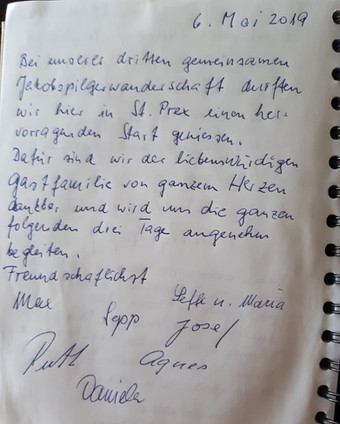 6. Mai 2019
Bei unserer dritten gemeinsamen
Jakobspilgerwanderschaft durften
wir hier in St. Prex einen her-
vorragenden Start geniessen.
Dafür sind wir der liebenswürdigen
Gastfamilie von ganzem Herzen
dankbar und wird uns die ganzen
folgenden drei Tage angenehm
begleiten.
Freundschaftlichst
Max Sepp u. Maria
Josef
Ruth Agnes
Daniela